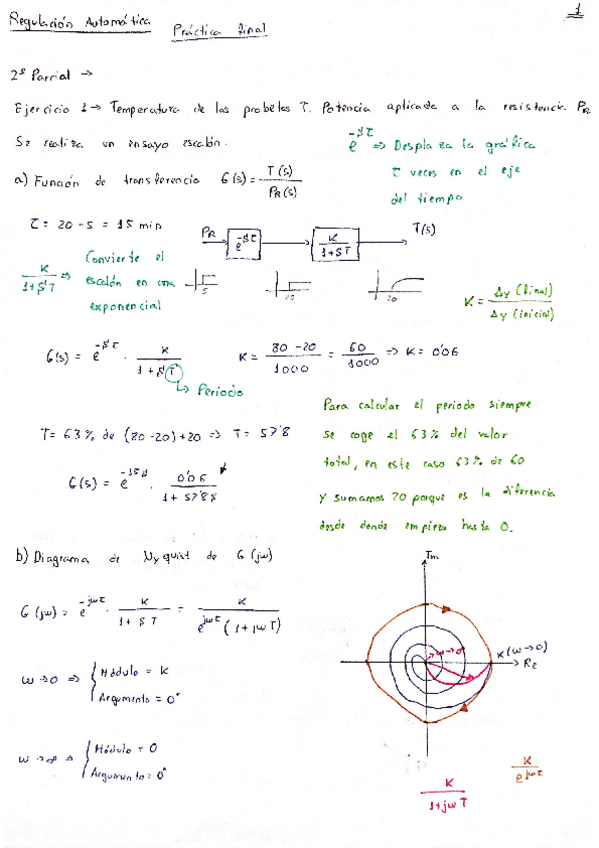 1
Regulación Automática Práctica final
2º Parcial →
Ejercicio 1 → Temperatura de las probetas T. Potencia aplicada a la resistencia PR
Se realiza un ensayo escalón.
e^-sτ ⇒ Desplaza la gráfica
τ veces en el eje
del tiempo
a) Función de transferencia G(s) = T(s) / PR(s)
τ = 20 - 5 = 15 min
PR → e^-sτ → K / 1+sT → T(s)
K / 1+sT ⇒ Convierte el
escalón en una
exponencial
5 20 20
K = Δy (final) / Δy (inicial)
G(s) = e^-sτ · K / 1+sT
K = 80 - 20 / 1000 = 60 / 1000 ⇒ K = 0'06
↳ Periodo
T = 63% de (80-20)+20 ⇒ T = 57'8
G(s) = e^-15s · 0'06 / 1 + 57'8s
Para calcular el periodo siempre
se coge el 63% del valor
total, en este caso 63% de 60
y sumamos 20 porque es la diferencia
desde donde empieza hasta 0.
b) Diagrama de Nyquist de G(jω)
G(jω) = e^-jωτ · K / 1+sT = K / e^jωτ (1+jωT)
ω→0 ⇒ { Módulo = K
Argumento = 0°
ω→∞ ⇒ { Módulo = 0
Argumento = 0°
Im
ω→∞
K(ω→0)
Re
K / e^jωτ
K / 1+jωT